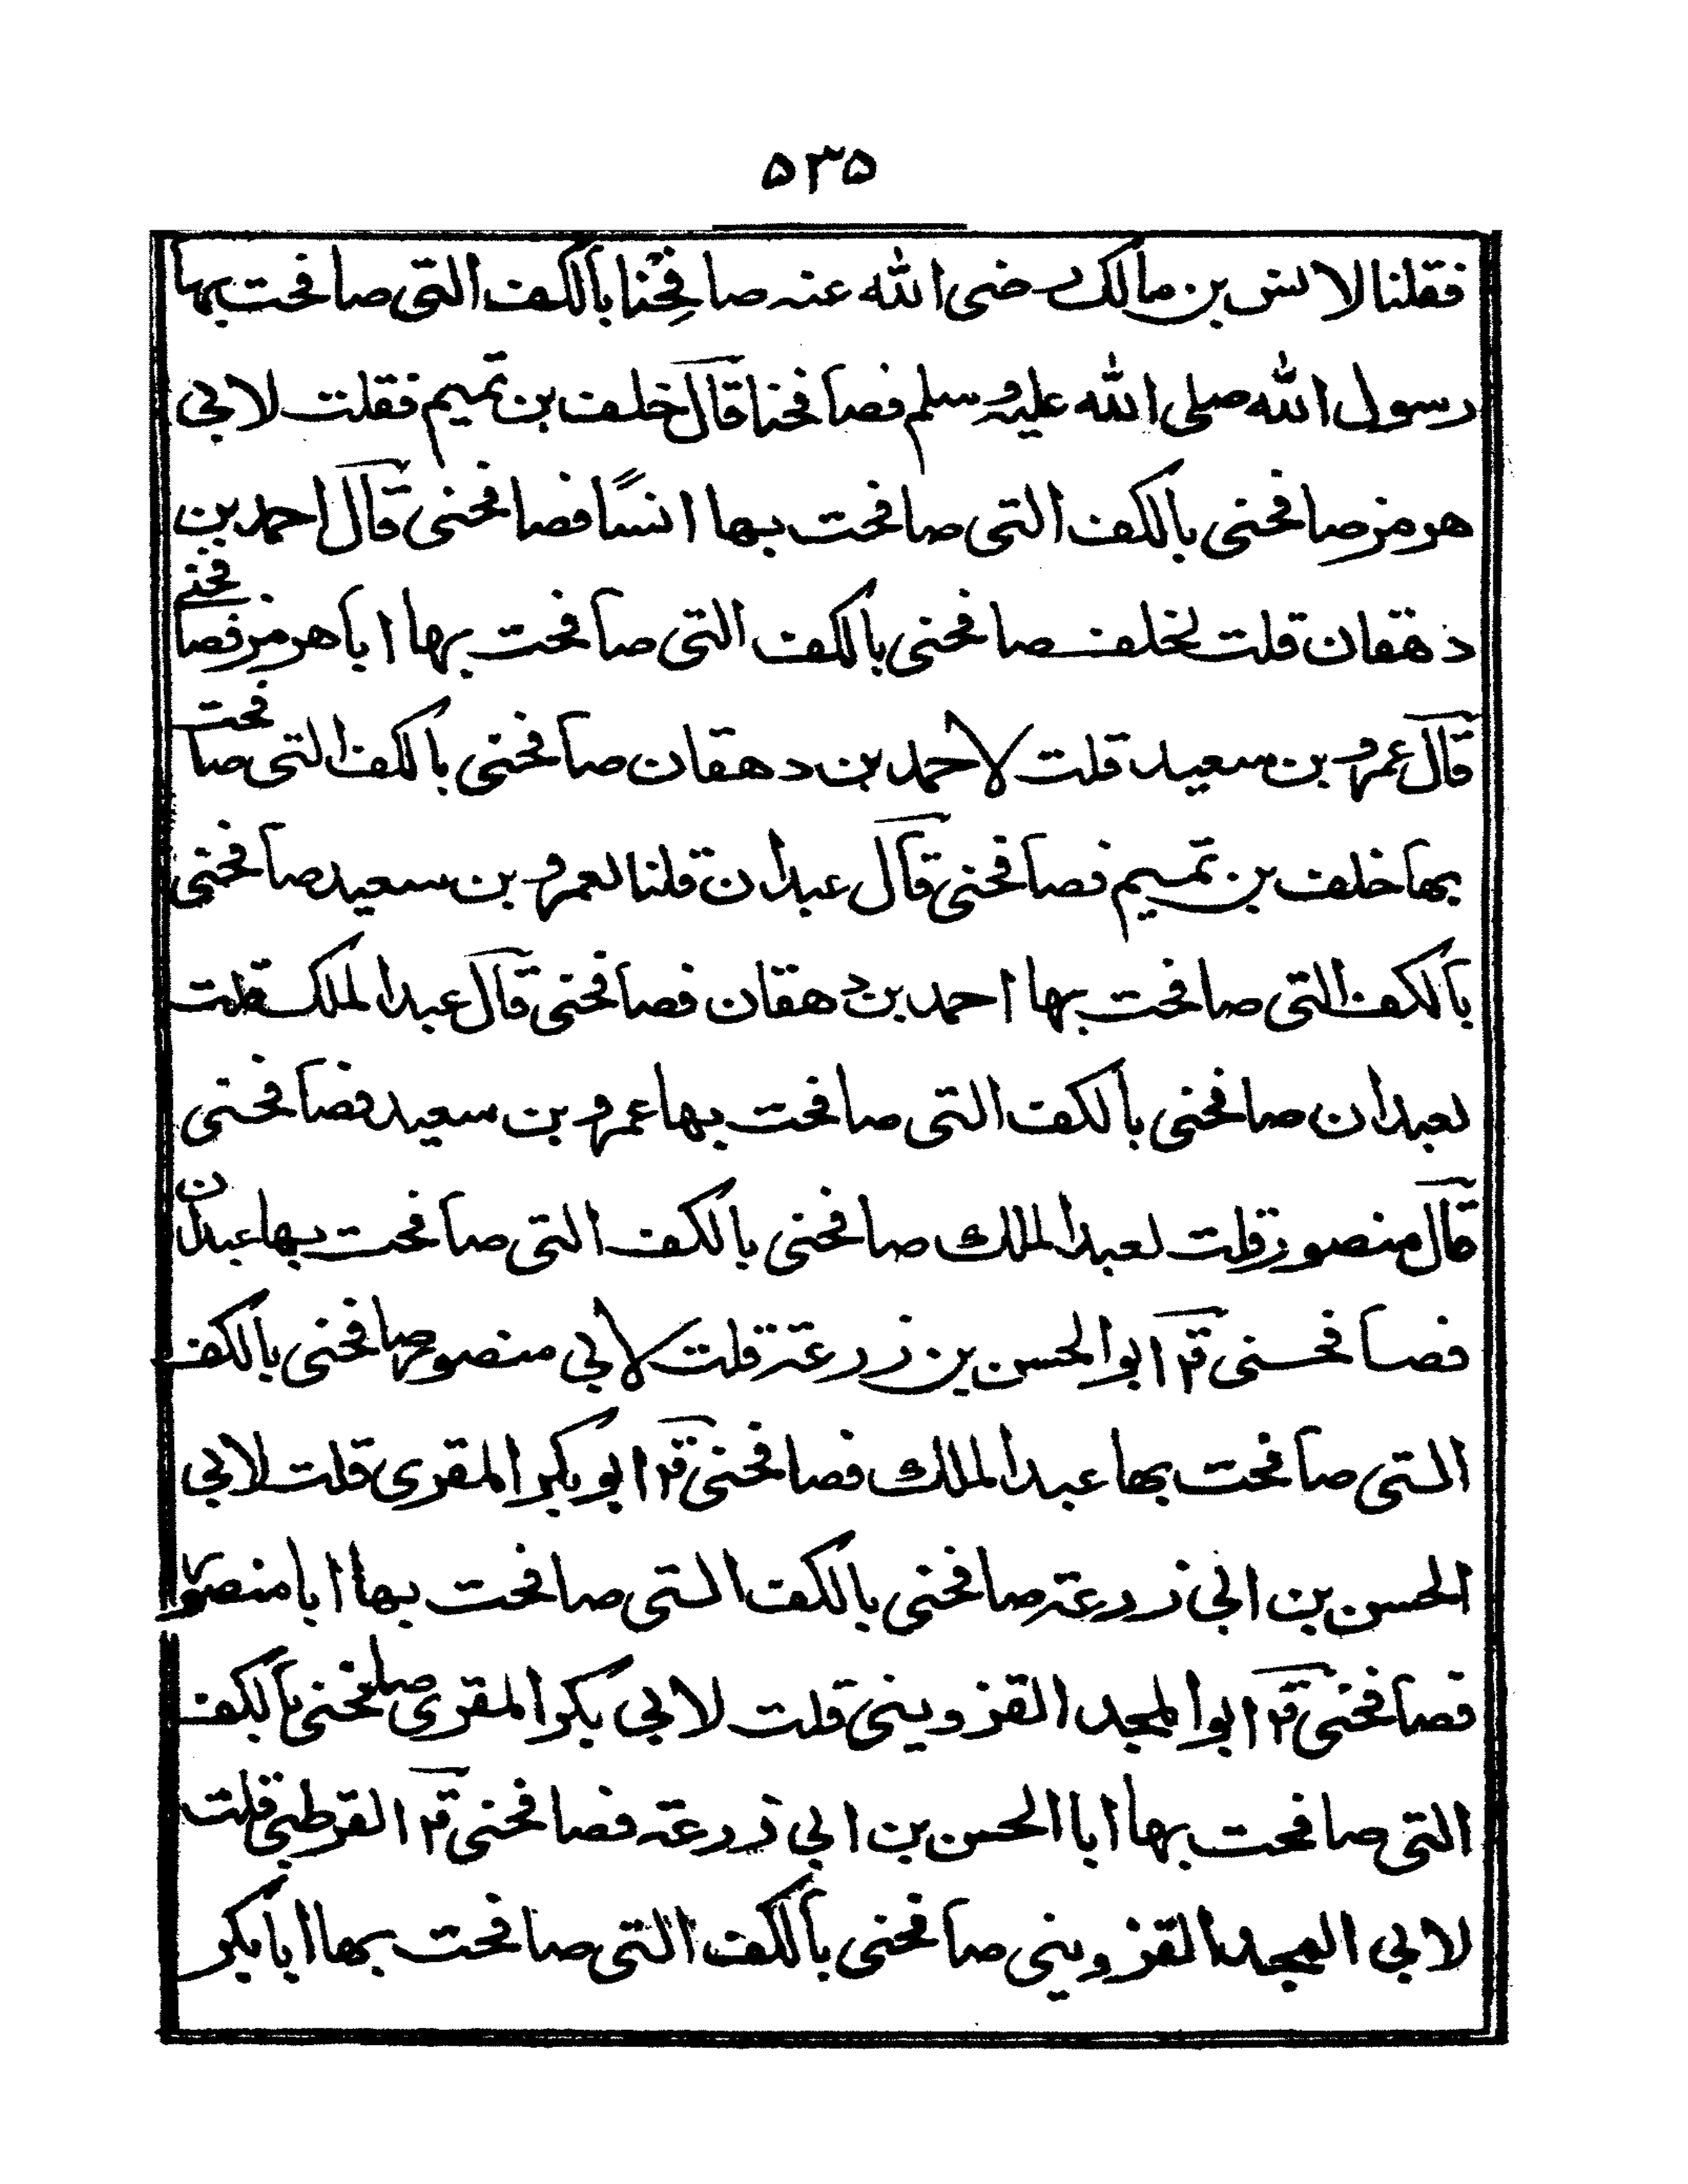 ۵۳۵
فقلنا لانس بن مالك رضى الله عنه صافِحْنا بالكف التى صافحت بها
رسول الله صلى الله عليه وسلم فصافحنا قال خلف بن تميم فقلت لابي
هرمز صافحنى بالكف التى صافحت بها انسًا فصافحنى قال احمد بن
دهقان قلت لخلف صافحنى بالكف التى صافحت بها اباهرمز فصافحنى
قال عمرو بن سعيد قلت لاحمد بن دهقان صافحنى بالكف التى صافحت
بها خلف بن تميم فصافحنى قال عبدان قلنا لعمرو بن سعيد صافحنى
بالكف التى صافحت بها احمد بن دهقان فصافحنى قال عبد الملك قلت
لعبدان صافحنى بالكف التى صافحت بها عمرو بن سعيد فصافحنى
قال منصور قلت لعبد الملك صافحنى بالكف التى صافحت بها عبدان
فصافحنى قر ابوالحسن بن زرعة قلت لابي منصور صافحنى بالكف
التى صافحت بها عبد الملك فصافحنى قر ابوبكر المقرى قلت لابي
الحسن بن ابي زرعة صافحنى بالكف التى صافحت بها ابا منصور
فصافحنى قر ابوالمجد القزوينى قلت لابي بكر المقرى صافحنى بالكف
التى صافحت بها ابا الحسن بن ابي زرعة فصافحنى قر القرطبى قلت
لابي المجد القزوينى صافحنى بالكف التى صافحت بها ابابكر